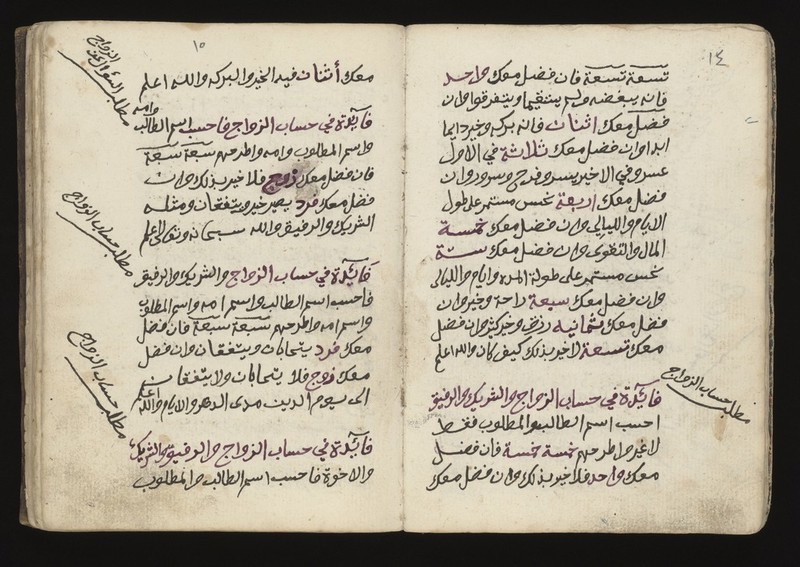 ١٤
تسعة تسعة فان فضل معك واحد
فانه يبغضه ولم يتقيما ويتفرقوا وان
فضل معك اثنان فانه بركه وخير دايما
ابدا وان فضل معك ثلاثة في الاول
عسر وفي الاخير يسر وفرح وسرور وان
فضل معك اربعة نحس مستمر على طول
الايام والليالي وان فضل معك خمسة
المال والتقوى وان فضل معك ستة
نحس مستمر على طولة المده وايام والليالي
وان فضل معك سبعة راحة وخير وان
فضل معك ثمانيه رزق وخير كثير وان فضل
معك تسعة لا خير بذلك كيف كان والله اعلم
مطلب حساب الزواج
فايدة في حساب الزواج والشريك والرفيق
احسب اسم الطالب والمطلوب فقط
لا غير واطرحهم خمسة خمسة فان فضل
معك واحد فلا خير بذلك وان فضل معك
١٥
معك أثنان فيه الخير والبركه والله اعلم
مطلب السؤال عن الزواج
فايدة في حساب الزواج فاحسب اسم الطالب وامه
واسم المطلوب وامه واطرحهم سبعة سبعة
فان فضل معك زوج فلا خير بذلك وان
فضل معك فرد يصير خير ويتفقان ومثله
الشريك والرفيق والله سبحانه وتعالى اعلم
مطلب حساب الزواج
فايدة في حساب الزواج والشريك والرفيق
فاحسب اسم الطالب واسم امه واسم المطلوب
واسم امه واطرحهم سبعة سبعة فان فضل
معك فرد يتحابان ويتفقان وان فضل
معك زوج فلا يتحابان ولا يتفقان
الى يوم الدين مدى الدهر والايام والله اعلم
مطلب حساب الزواج
فايدة في حساب الزواج والرفيق والشريك
والاخوة فاحسب اسم الطالب والمطلوب